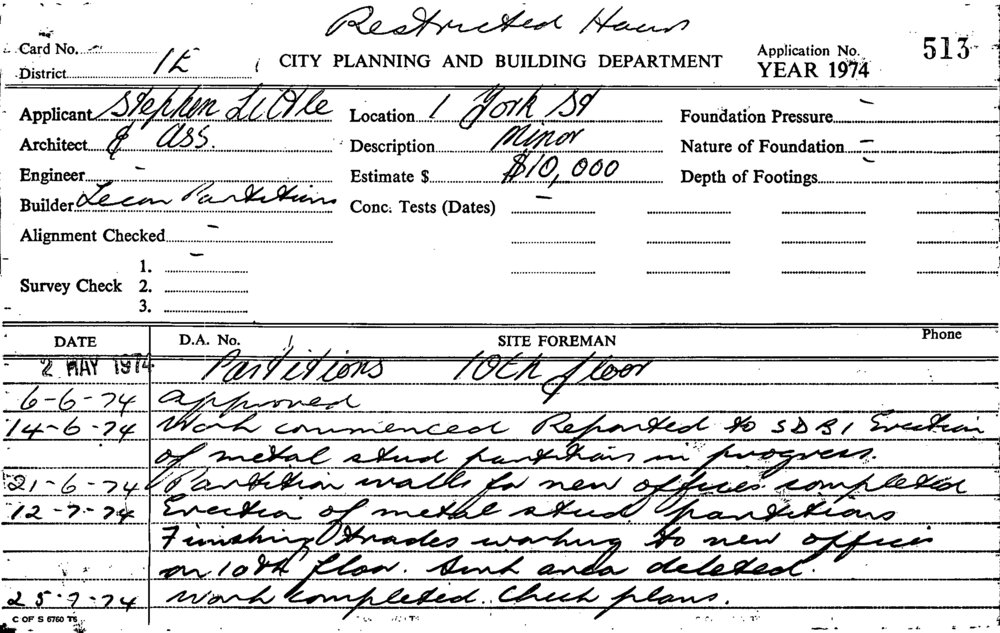 Restricted Hours
Card No.
District 1E
CITY PLANNING AND BUILDING DEPARTMENT
Application No. 513
YEAR 1974
Applicant Stephen Little
Location 1 York St
Foundation Pressure -
Architect & Ass.
Description Minor
Nature of Foundation -
Engineer -
Estimate $ $10,000
Depth of Footings -
Builder Lecon Partitions
Conc. Tests (Dates) -
Alignment Checked -
Survey Check 1. -
2.
3.
DATE D.A. No. SITE FOREMAN Phone
2 MAY 1974 Partitions 10th floor
6-6-74 approved
14-6-74 Work commenced Reported to SDBI Erection
of metal stud partitions in progress.
21-6-74 Partition walls for new offices completed
12-7-74 Erection of metal stud partitions
Finishing trades working to new offices
on 10th floor. Sink area deleted.
25-7-74 Work completed. Check plans.
C OF S 6760 T6